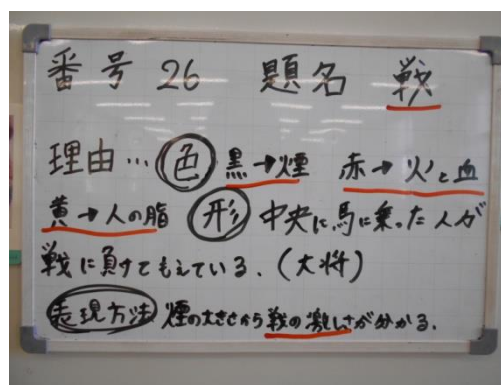 番号 26 題名 戦
理由… 色 黒→煙 赤→火と血
黄→人の脂 形 中央に馬に乗った人が
戦に負けてもえている。(大将)
表現方法 煙の大きさから戦の激しさが分かる。